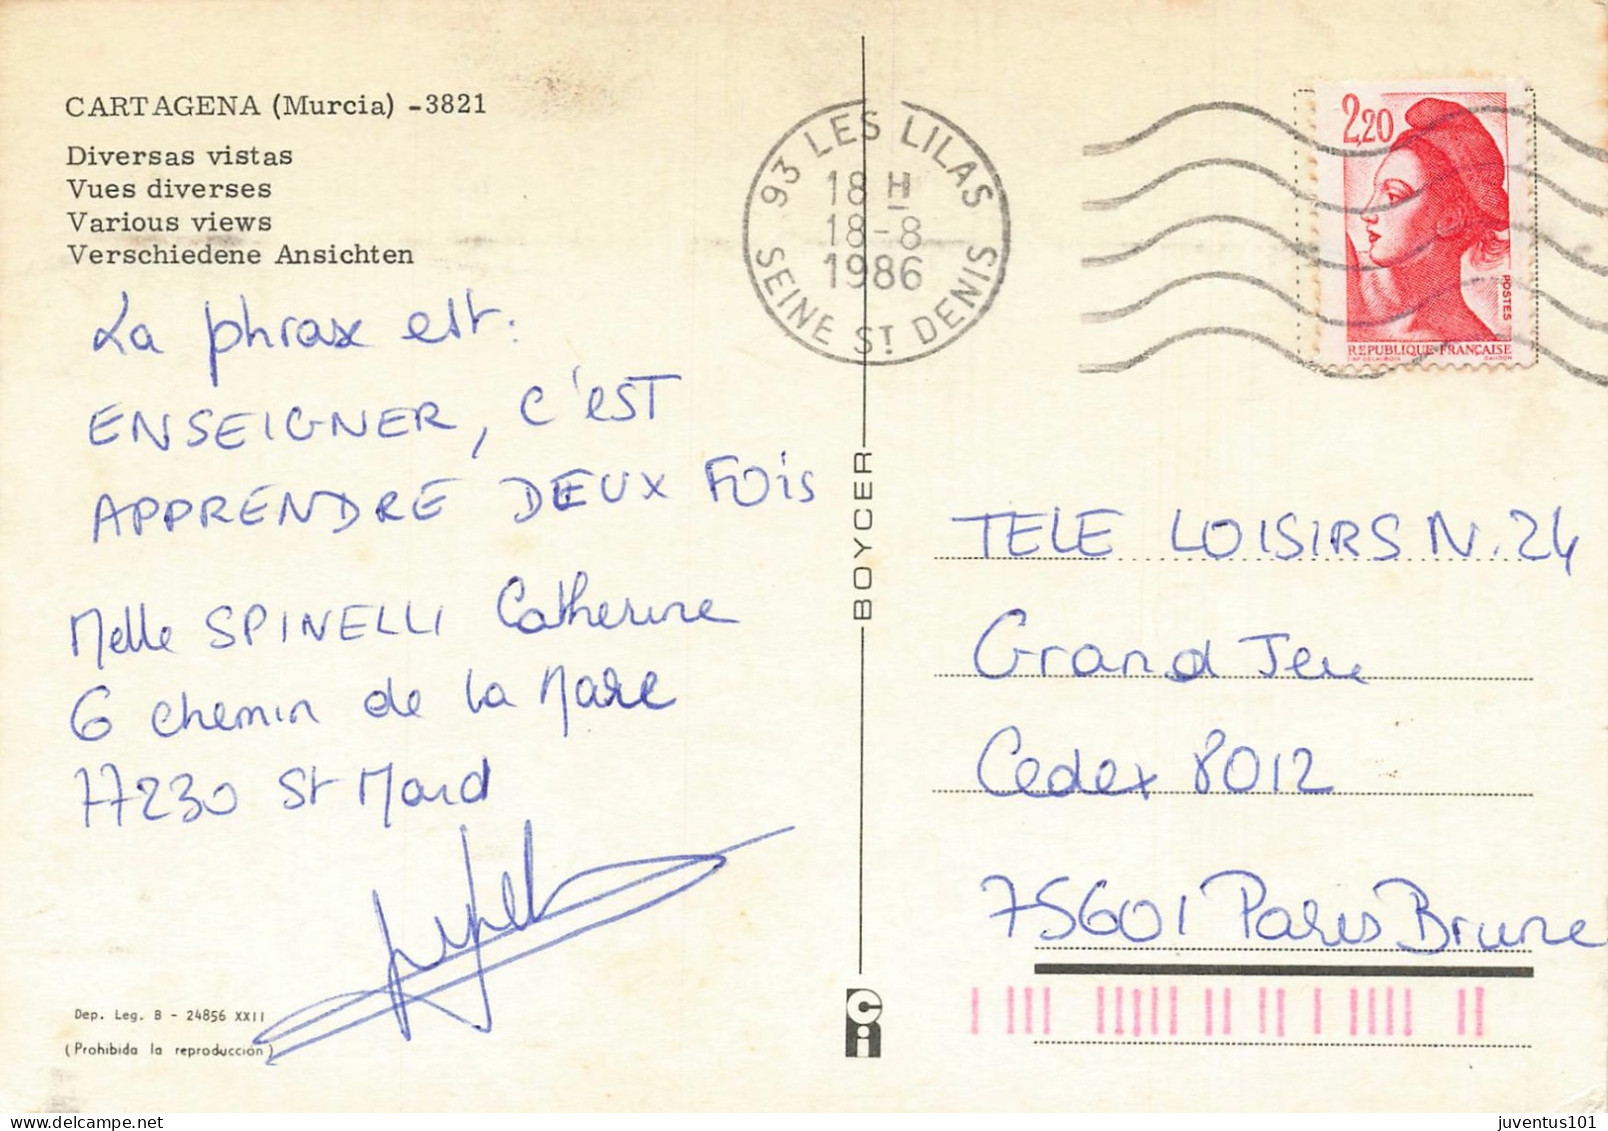 CARTAGENA (Murcia) -3821
Diversas vistas
Vues diverses
Various views
Verschiedene Ansichten
La phrase est :
ENSEIGNER, C'EST
APPRENDRE DEUX FOIS
Melle SPINELLI Catherine
6 chemin de la Mare
77230 St Mard
Dep. Leg. B - 24856 XXII
(Prohibida la reproducción)
BOYCER
Ci
93 LES LILAS
18 H
18-8
1986
SEINE ST DENIS
2,20
POSTES
REPUBLIQUE FRANÇAISE
TELE LOISIRS N. 24
Grand Jeu
Cedex 8012
75601 Paris Brune
juventus101